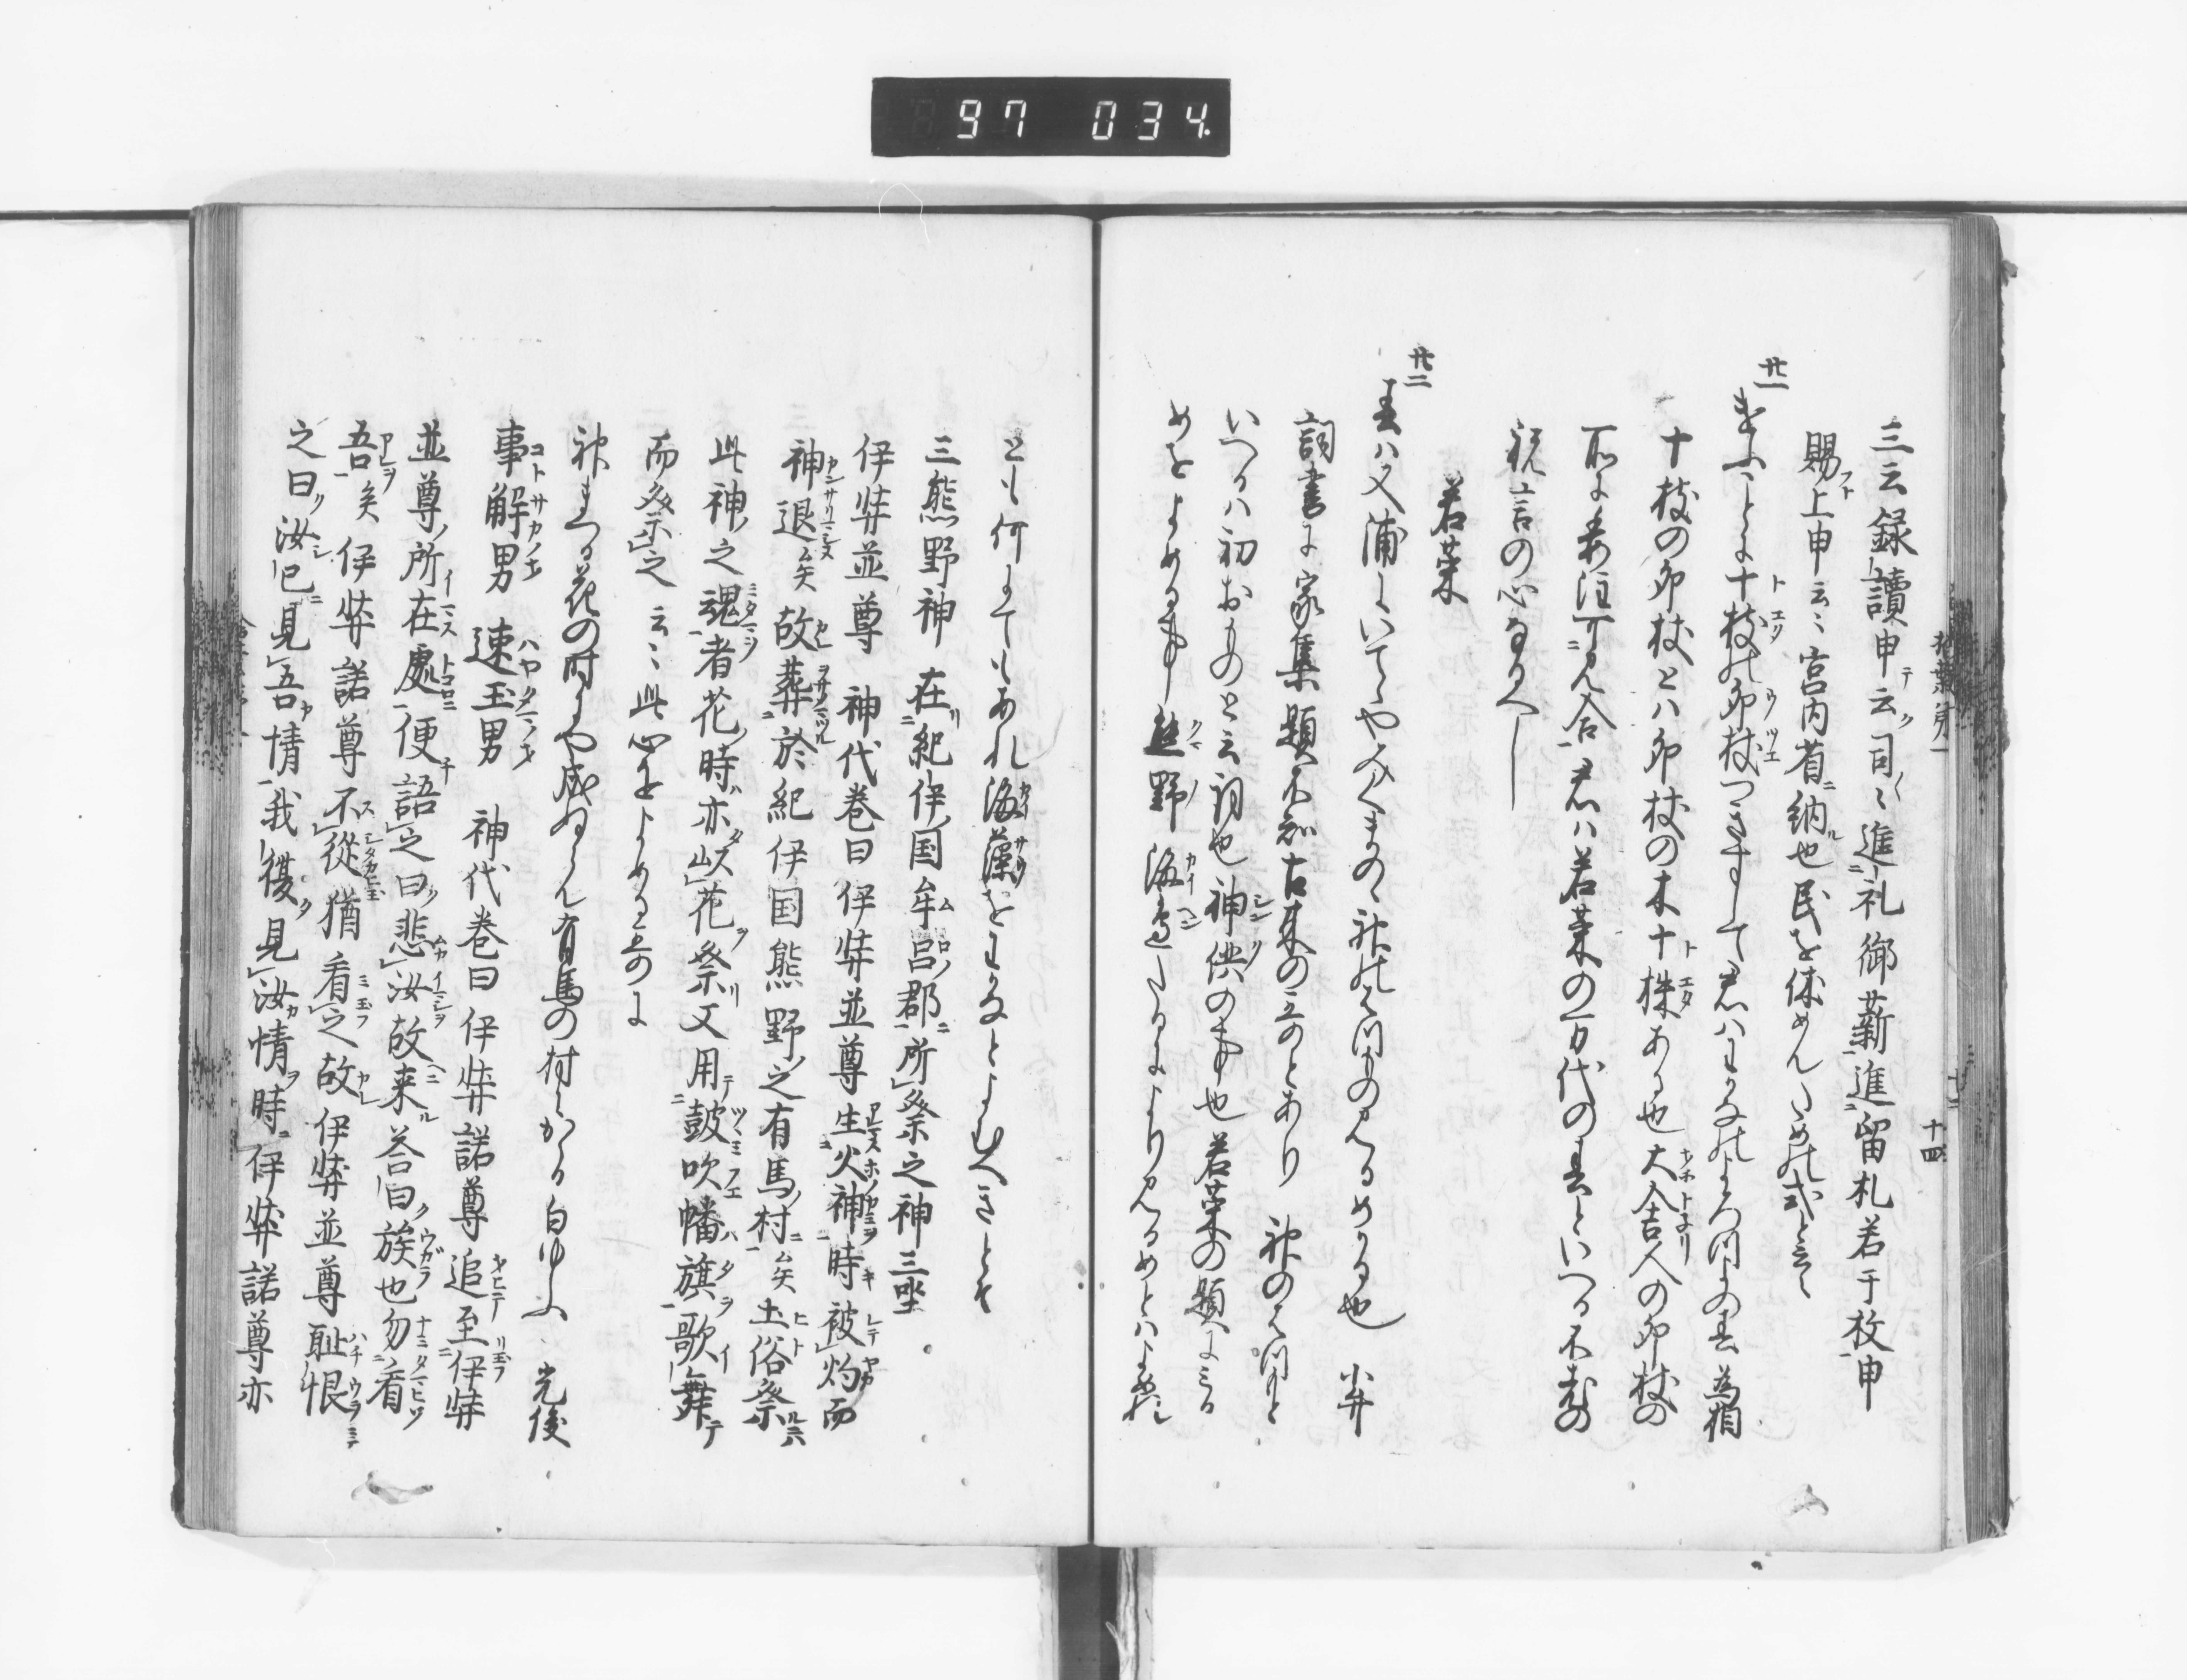 97 034
十四
三云録讀申云司々進礼御薪進留札若干枚申
賜上申云〻宮内省納也民を休めんため式と云〻
廿一
けふことに十枝の卯杖つきすして君はわかなのよろつの春 為相
十枝の卯杖とハ卯杖の木十株ある也大舎人の卯杖の
所に委注可見合君ハ若菜の万代の春といへる不老の
祝言の心なるへし
若菜
廿二
春ハ又浦にいてゝやみくまのゝ神のはつ物のみるめかる也
詞書に家集題不知古来の立のとあり 神のはつ物と
いへるハ初おものと云詞也神供の事也若菜の題にみる
めをよめる事熊野海邊たるによりみるめとハよめれ
とも何にてもあれ海藻をわかなとよむへきとそ
三熊野神 在紀伊国牟呂郡所祭之神三坐
伊弉並尊 神代巻曰伊弉並尊生火神時被灼而
神退矣故葬於紀伊国熊野之有馬村矣土俗祭
此神之魂者花時亦以花祭又用鼓吹幡旗歌舞
而祭之云〻此心をよめる哥に
神まつる花の時にや成ぬらん有馬の村にかゝる白ゆふ 光俊
事解男 速玉男 神代巻曰伊弉諾尊追至伊弉
並尊所在處便語之曰悲汝故来答曰族也勿看
吾矣伊弉諾尊不從猶看之故伊弉並尊耻恨
之曰汝已見吾情我復見汝情時伊弉諾尊亦